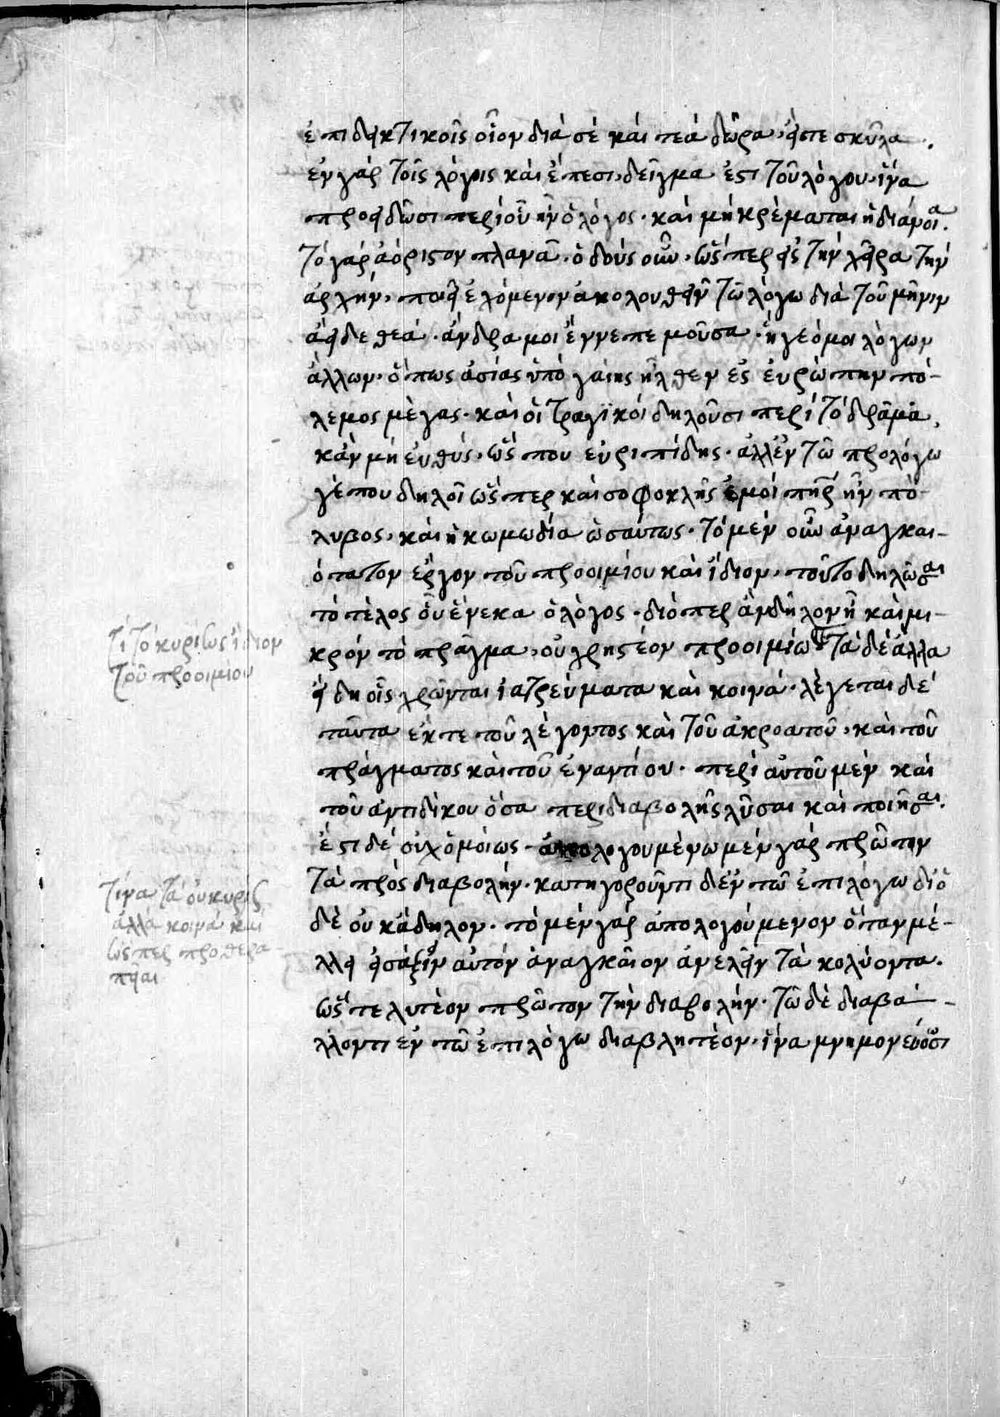 ἐπιδεικτικοῖς οἷον διὰ σὲ καὶ τεὰ δῶρα, εἴτε σκῦλα.
ἐν γὰρ τοῖς λόγοις καὶ ἔπεσι δεῖγμα ἐστὶ τοῦ λόγου. ἵνα
προειδῶσι περὶ οὗ ἦν ὁ λόγος. καὶ μὴ κρέμαται ἡ διάνοια.
τὸ γὰρ ἀόριστον πλανᾶ. ὁ δοὺς οὖν. ὥσπερ εἰς τὴν χεῖρα τὴν
ἀρχήν. ποιεῖ ἑλόμενον ἀκολουθεῖν τῶ λόγω διὰ τοῦ μῆνιν
ἄειδε θεά. ἄνδρα μοι ἔννεπε μοῦσα. ἡγεόμοι λόγων
ἄλλων. ὅπως ἀσίας ὑπὸ γαίης ἦλθεν ἐς εὐρώπην πό-
λεμος μέγας. καὶ οἱ τραγικοὶ δηλοῦσι περὶ τὸ δρᾶμα,
κἂν μὴ εὐθὺς, ὥσπου εὐριπίδης. ἀλλ' ἐν τῶ προλόγω
γέ που δηλοῖ ὥσπερ καὶ σοφοκλῆς ἐμοὶ πὴρ ἦν πό-
λυβος. καὶ ἡ κωμωδία ὡσαύτως. τὸ μὲν οὖν ἀναγκαι-
ότατον ἔργον τοῦ προοιμίου καὶ ἴδιον, τοῦτο δηλῶσαι
τὸ τέλος οὗ ἕνεκα ὁ λόγος. διόπερ ἂν δῆλον ἦ καὶ μι-
κρὸν τὸ πρᾶγμα, οὐ χρηστέον προοιμίω. τὰ δὲ ἄλλα
εἴδη οἷς χρῶνται ἰατρεύματα καὶ κοινά. λέγεται δὲ
ταῦτα ἔκ τε τοῦ λέγοντος καὶ τοῦ ἀκροατοῦ, καὶ τοῦ
πράγματος καὶ τοῦ ἐναντίου. περὶ αὐτοῦ μὲν καὶ
τοῦ ἀντιδίκου ὅσα περὶ διαβολῆς λῦσαι καὶ ποιῆσαι.
ἔστι δὲ οὐχ ὁμοίως. ἀπολογουμένω μὲν γὰρ πρῶτον
τὰ πρὸς διαβολήν. κατηγοροῦντι δ' ἐν τῶ ἐπιλόγω διὸ
δὲ οὐκ ἄδηλον. τὸ μὲν γὰρ ἀπολογούμενον ὅταν μέ-
λλη εἰσάξειν αὐτὸν ἀναγκαῖον ἀνελεῖν τὰ κολύοντα.
ὥστε λυτέον πρῶτον τὴν διαβολήν. τῶ δὲ διαβά-
λλοντι ἐν τῶ ἐπιλόγω διαβλητέον. ἵνα μνημονεύουσι
τί τὸ κυρίως ἴδιον
τοῦ προοιμίου
τίνα τὰ οὐ κυρίως
ἀλλὰ κοινὰ καὶ
ὥσπερ προθερα
πεῖαι